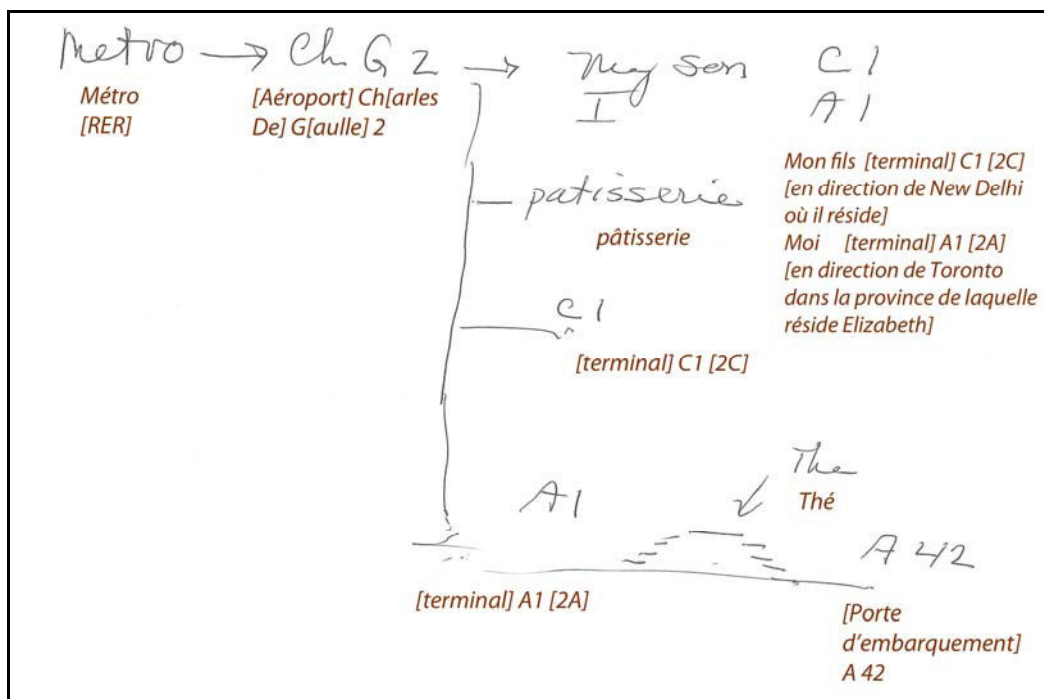 Metro → Ch G 2 → My son C 1
I A 1
Métro
[RER]
[Aéroport] Ch[arles
De] G[aulle] 2
Mon fils [terminal] C1 [2C]
[en direction de New Delhi
où il réside]
Moi [terminal] A1 [2A]
[en direction de Toronto
dans la province de laquelle
réside Elizabeth]
patisserie
pâtisserie
C 1
[terminal] C1 [2C]
The
Thé
A1
A 42
[terminal] A1 [2A]
[Porte
d'embarquement]
A 42